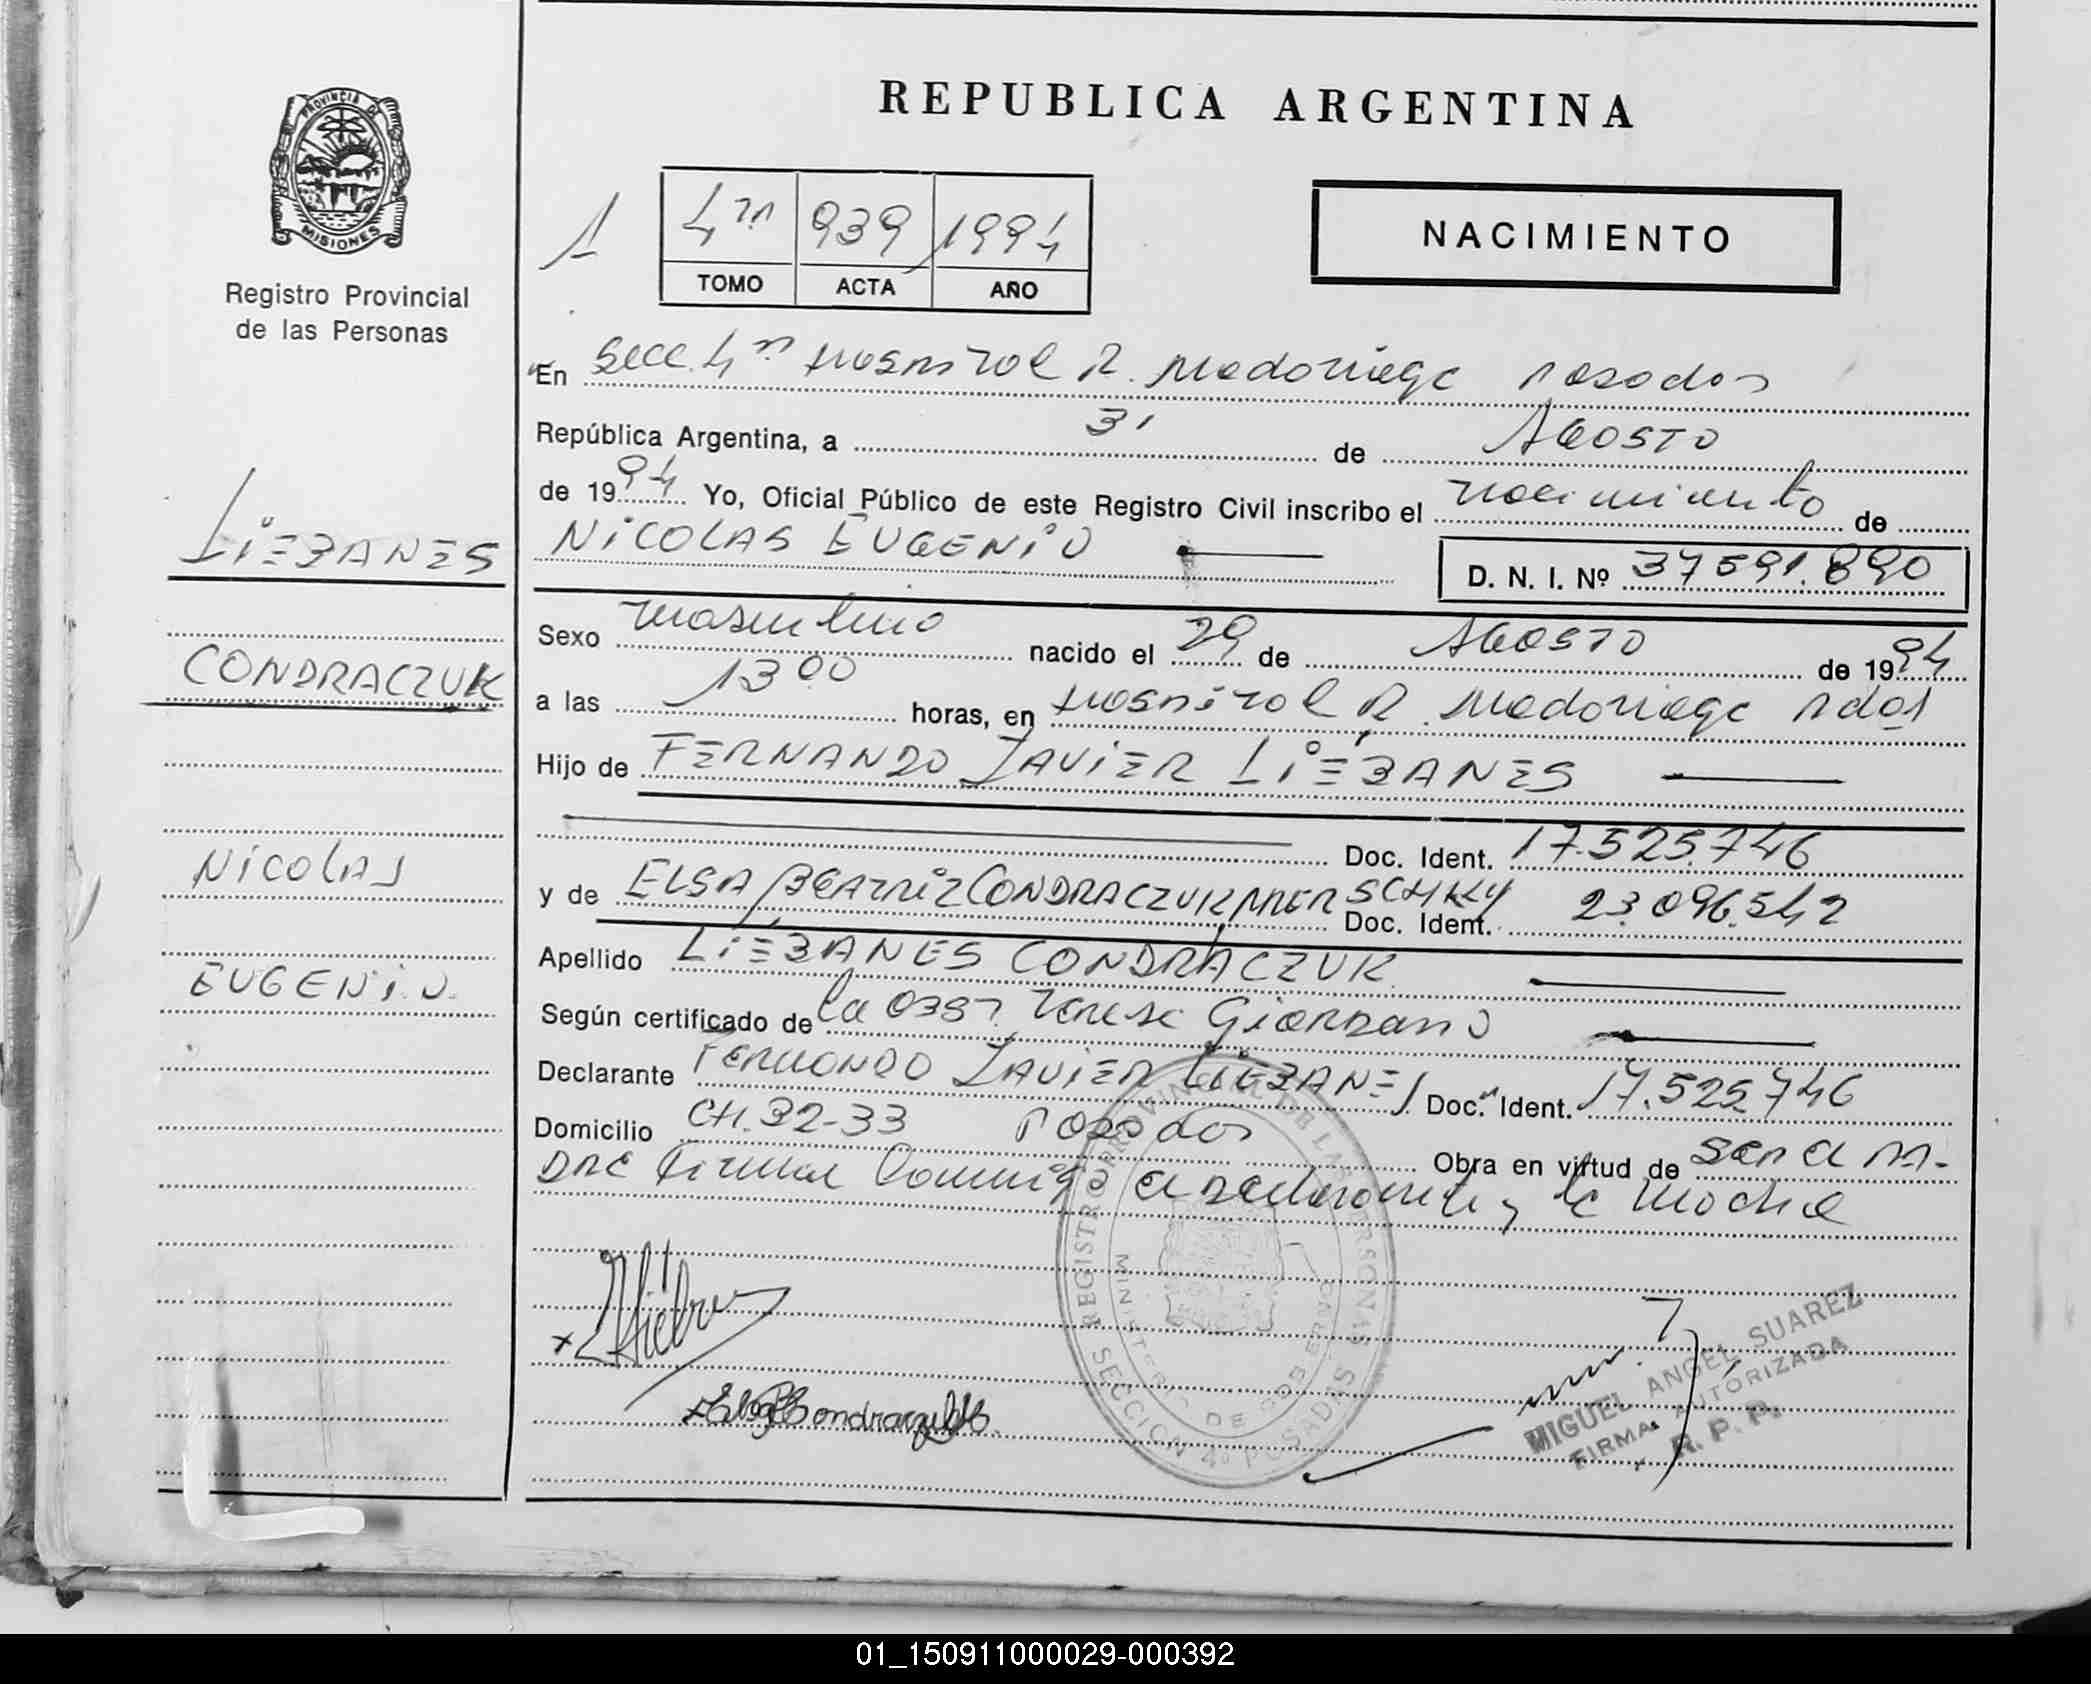 REPUBLICA ARGENTINA
PROVINCIA DE
MISIONES
Registro Provincial
de las Personas
1
939 1994
TOMO ACTA AÑO
NACIMIENTO
En Secc. 4ª Hospital R. Madariaga Posadas
República Argentina, a 31 de AGOSTO
de 1994 Yo, Oficial Público de este Registro Civil inscribo el nacimiento de
NICOLAS EUGENIO
D. N. I. Nº 37591.890
Sexo masculino nacido el 29 de AGOSTO de 1994
a las 13 00 horas, en Hospital R. Madariaga Pdas
Hijo de FERNANDO JAVIER LIÉBANES
Doc. Ident. 17.525.746
y de ELSA BEATRIZ CONDRACZUK
Doc. Ident. 23.096.542
Apellido LIEBANES CONDRACZUK
Según certificado de la Obst. Teresa Giordano
Declarante FERNANDO JAVIER LIEBANES Doc. Ident. 17.525.746
Domicilio CH. 32-33 Posadas
Obra en virtud de ser el pa-
dre firman el declarante y la madre
LIEBANES
CONDRACZUK
NicolAs
EUGENIO
REGISTRO PROVINCIAL DE LAS PERSONAS
MINISTERIO DE GOBIERNO
SECCION 4º POSADAS
MIGUEL ANGEL SUAREZ
FIRMA AUTORIZADA
R. P. P.
01_150911000029-000392